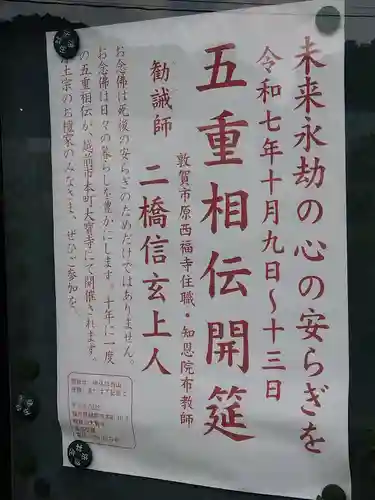 未来永劫の心の安らぎを
令和七年十月九日～十三日
五重相伝開筵
敦賀市原西福寺住職・知恩院布教師
勧誡師 二橋信玄上人
お念佛は死後の安らぎのためだけではありません。
お念佛は日々の暮らしを豊かにします。十年に一度
の五重相伝が、越前市本町大寶寺にて開催されます。
浄土宗のお檀家のみなさま、ぜひご参加を。